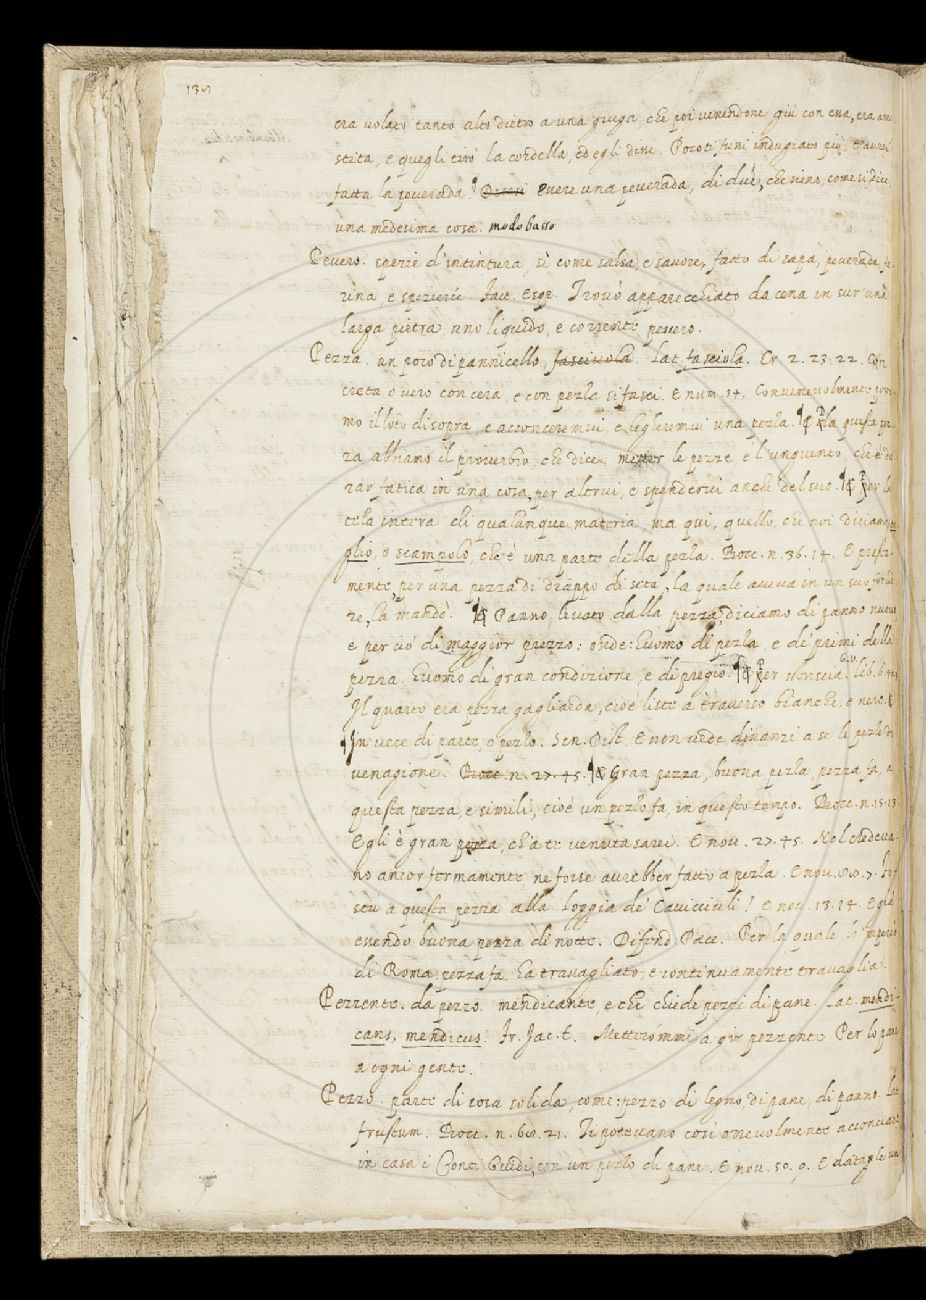 era volato tanto alto dietro a una gruga, che poi venendone giù con essa, era
stita, e quegli tirò la cordella, ed egli disse. Poco ti fussi indugiato più, t'avrei
fatta la peverada. Dicesi Essere una peverada, di due, che sieno, come si dice,
una medesima cosa. modo basso
Pevero. spezie d'intintura, sì come salsa, e savore, fatto di sapa, peverada, fa-
rina, e spezierie. Fav. Esop. Trovò apparecchiato da cena in sur una
larga pietra uno liquido, e corrente pevero.
Pezza. un poco di pannicello, Lat. fasciola. Cr. 2. 23. 22. Con
creta o vero con cera, e con pezza si fasci. E num. 14. Convenevolmente pore-
mo il loto di sopra, e acconceremvi, e legheremvi una pezza. Da questa pez-
za abbiamo il proverbio, che dice. metter le pezze, e l'unguento, che è du-
rar fatica in una cosa, per altrui, e spendervi anche del suo. Per la
tela intera di qualunque materia, ma qui, quello, che noi diciam
glio, o scampolo, che è una parte della pezza. Bocc. n. 36. 14. E presta-
mente, per una pezza di drappo di seta, la quale aveva in un suo forzie-
re, la mandò. Panno levato dalla pezza, diciamo di panno nuovo
e per ciò di maggior prezzo: onde: Huomo di pezza, e de' primi della
pezza. Huomo di gran condizione, e di pregio. Per striscia. G.V. lib. 6.
Il quarto era pezza gagliarda, cioè liste a traverso bianche, e nere.
In vece di parte, o pezzo. Sen. Pist. E non vede dinanzi a se le pezze di
venagione. Bocc. n. 27. 45. Gran pezza, buona pezza, pezza fa, a
questa pezza, e simili, cioè un pezzo fa, in questo tempo. Bocc. n. 15. 13.
Egli è gran pezza, ch'a te venuta sarei. E nov. 27. 45. Nol credeva-
no ancor fermamente, ne forse avrebber fatto a pezza. E nov.
stu a questa pezza alla loggia de' Cavicciuli! E nov. 13. 14. Eglè
essendo buona pezza di notte. Difend. Pace. Per la quale lo 'mperio
di Roma, pezza fa, ha travagliato, e continuamente travaglia.
Pezzente. da pezzo. mendicante, e che chiede pezzi di pane. Lat. mendi-
cans, mendicus. Fr. Jac. T. Metterommi a gir pezzente Per lo pane
a ogni gente.
Pezzo. parte di cosa solida, come: pezzo di legno, di pane, di panno. Lat.
frustum. Bocc. n. 60. 21. Ti potevano così orrevolmente acconciare
in casa i Conti Guidi, con un pezzo di pane. E nov. 50. 9. E datagle un